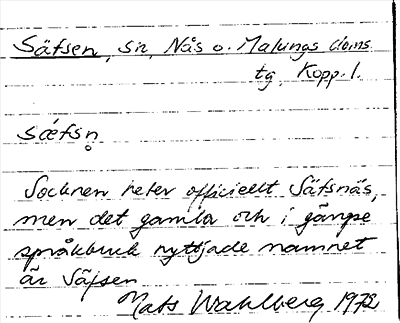 Säfsen, sn, Nås o. Malungs doms
tg, Kopp. l.
sǽfsn̥
Socknen heter officiellt Säfsnäs,
men det gamla och i gängse
språkbruk nyttjade namnet
är Säfsen
Mats Wahlberg 1972